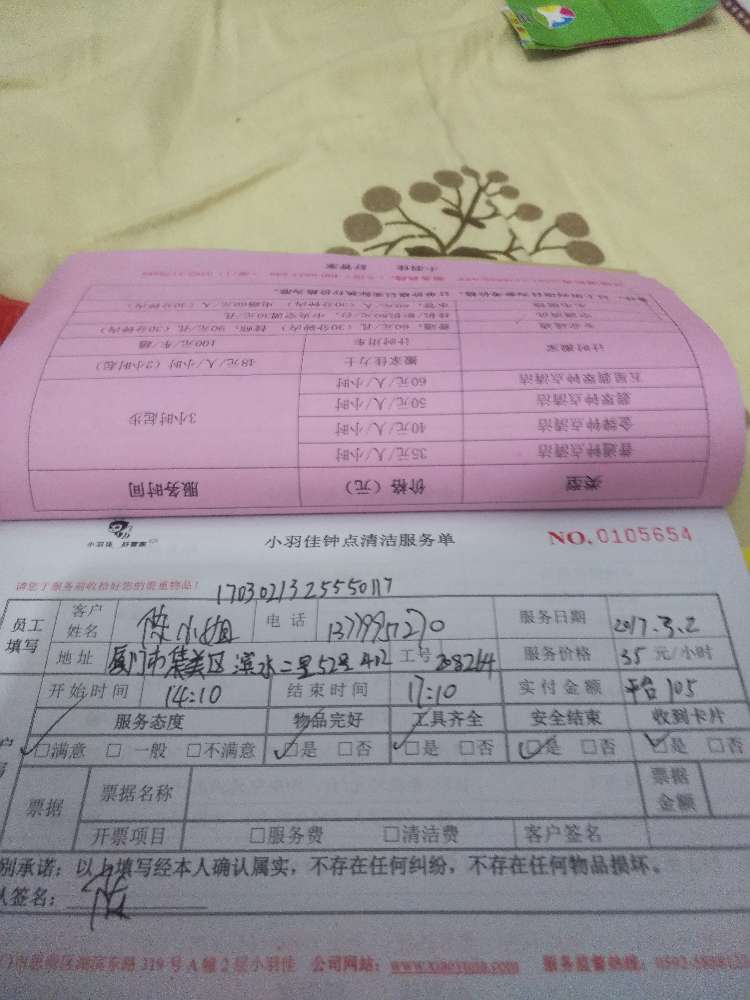 小羽佳 好管家
备注：以上所列项目为参考价格，订单价格以实际执行价格为准。
类型 价格（元） 服务时间
普通钟点清洁 35元/人/小时
金牌钟点清洁 40元/人/小时
翡翠钟点清洁 50元/人/小时
五星翡翠钟点清洁 60元/人/小时
3小时起步
计时搬家 搬家佳力士 48元/人/小时（2小时起）
计时用车 100元/车/趟
小羽佳 好管家
小羽佳钟点清洁服务单
NO.0105654
请您于服务前收拾好您的贵重物品！
1703021325550117
员工填写 客户姓名 陈小姐 电话 服务日期 2017.3.2
地址 厦门市集美区滨水二里52号402 工号 208264 服务价格 35 元/小时
开始时间 14:10 结束时间 17:10 实付金额 平台105
服务态度 物品完好 工具齐全 安全结束 收到卡片
□满意 □一般 □不满意 □是 □否 □是 □否 □是 □否 □是 □否
票据 票据名称 票据金额
开票项目 □服务费 □清洁费 客户签名
别承诺：以上填写经本人确认属实，不存在任何纠纷，不存在任何物品损坏。
人签名： 陈
市思明区湖滨东路319号A幢2层小羽佳 公司网站：www.xiaoyujia.com 服务监督热线：0592-